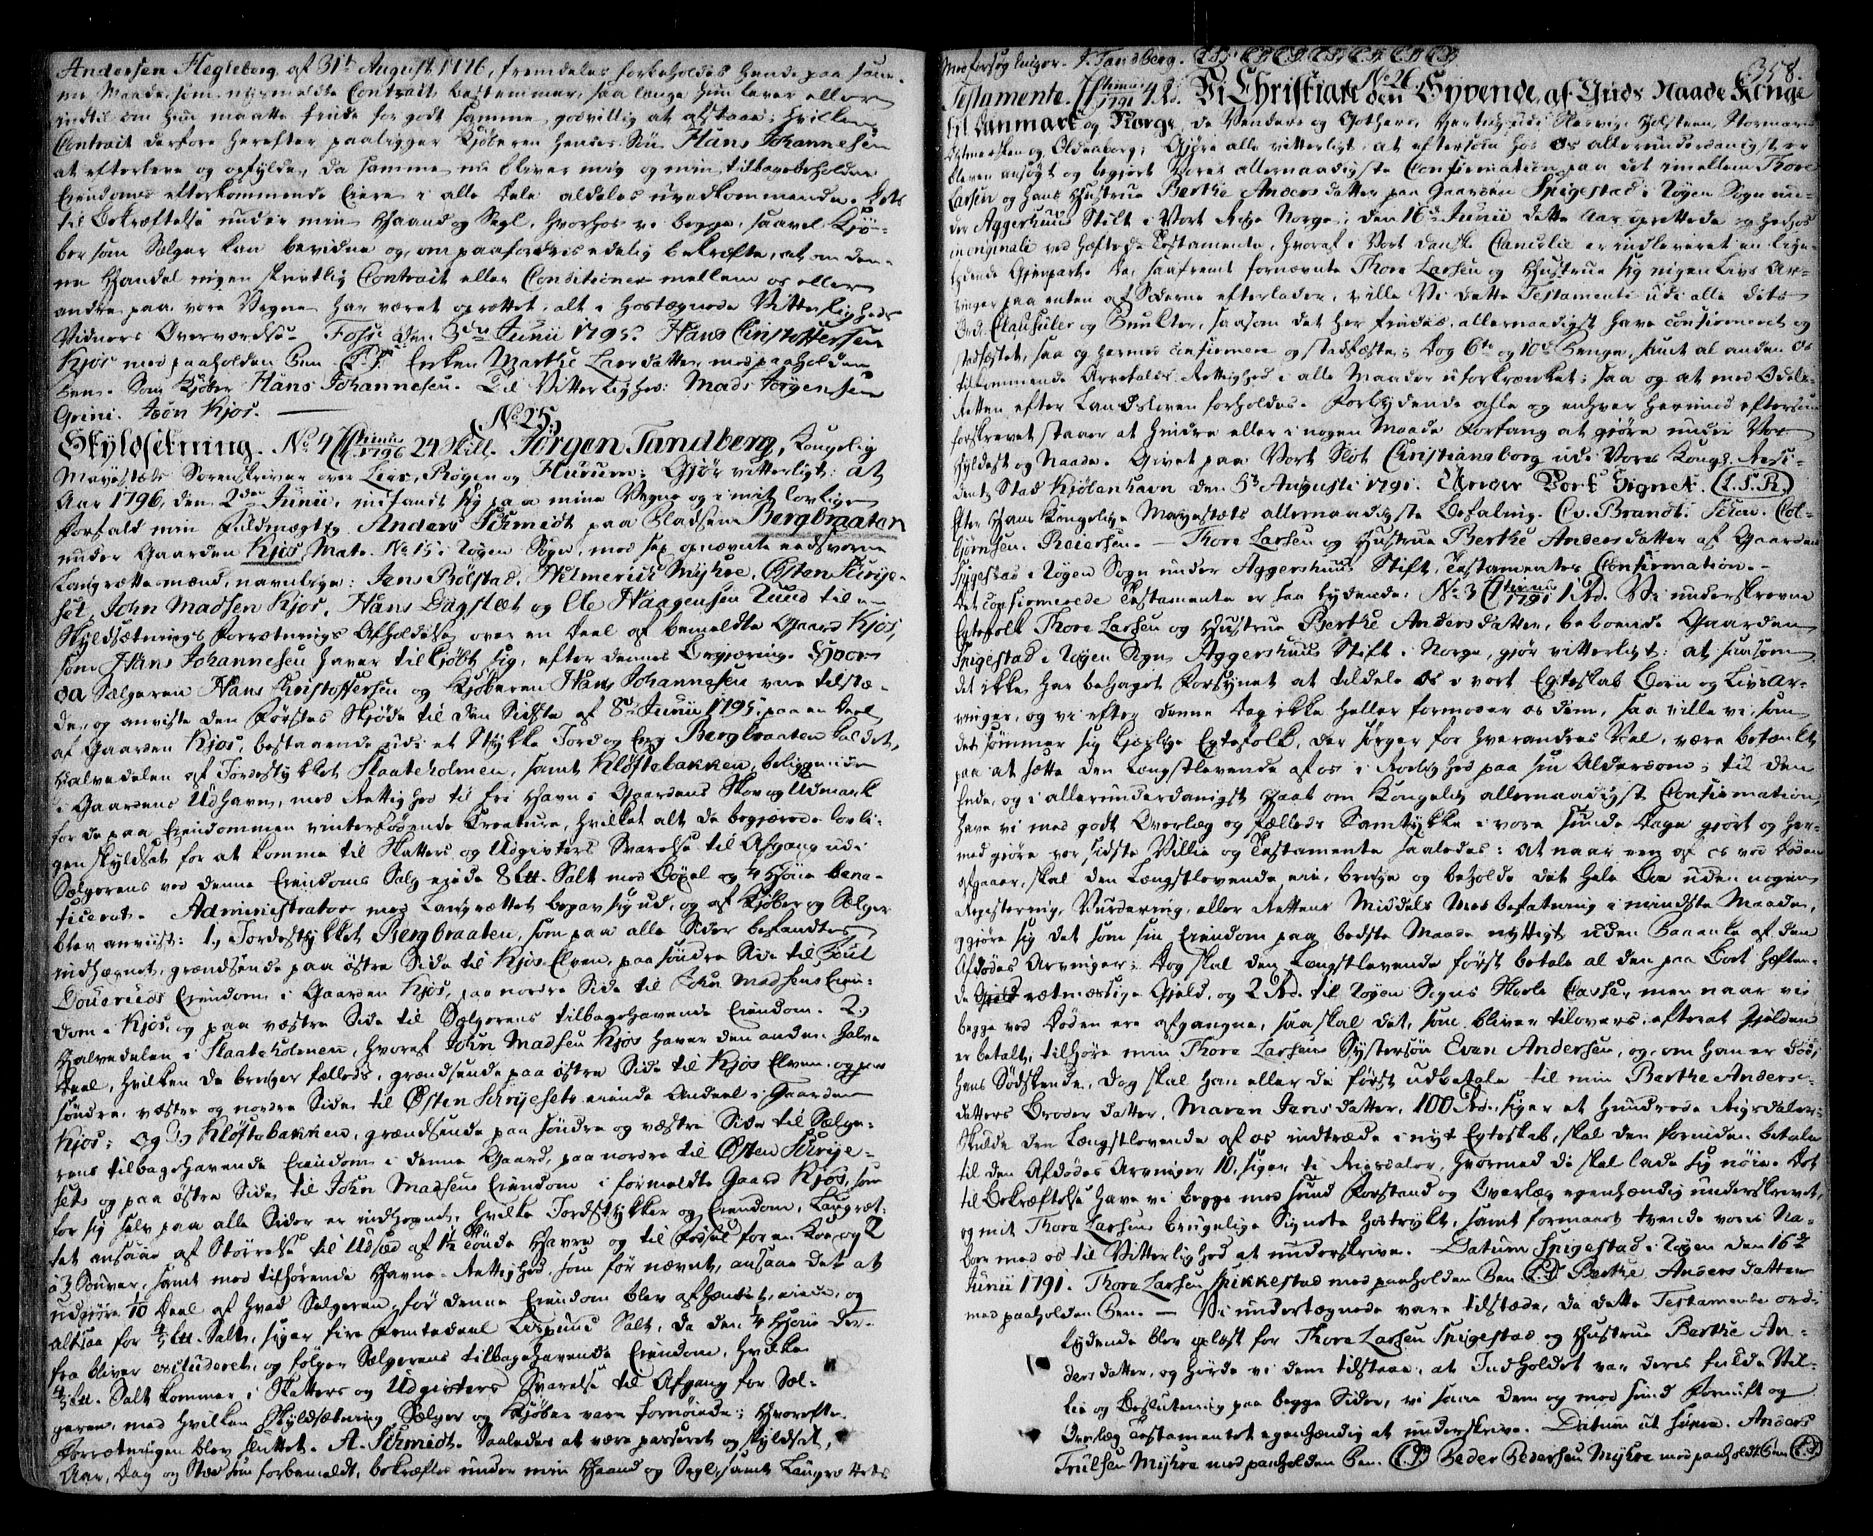 Andersen Hegleberg af 31te August 1776, fremdeles forbeholdes hende paa sam-
me Maade, som nysmeldte Contract bestemmer, saa længe hun lever eller
indtil om hun maatte finde for godt samme godvillig at afstaae; hvilken
Contract derfore herefter paaligger Kjøberen hendes Søn Hans Johannesen
at efterleve og opfylde, da samme nu bliver mig og min tilbagebeholdne
Eiendoms efterkommende Eiere i alle Dele aldeles uvedkommende. Dets
til Bekræftelse under min Haand og Segl, hvorhos vi begge, saavel Kjø-
ber som Sælger kan bevidne og, om paafordres eedelig bekræfte, at om den-
ne Handel ingen skriftlig Contract eller Conditioner mellem os eller
andre paa vore Vegne har været oprettet, alt i hostegnede Vitterligheds
Vidners Overværelse. Foss den 3die Junii 1795. Hans Christoffersen
Kjos med paaholden Pen (L.S.) Enken Marthe Larsdatter med paaholden
Pen. Som Kjøber Hans Johannesen. Til Vitterlighed: Mads Jørgensen
Grini. Jøn Kjos.
No 25.
Skyldsetning. No 4 1796 24 Skill. Jørgen Tandberg, Kongelig
Mayestæts Sorenskriver over Lier, Røgen og Hurum; Gjør vitterligt: at
Aar 1796, den 2den Junii, indfandt sig paa mine Vegne og i mit lovlige
Forfald min Fuldmægtig Anders Schmidt paa Pladsen Bergbraaten
under Gaarden Kjos Matr. No 15 i Røgen Sogn, med sex opnævnte eedsvorne
Laugrettemænd, navnlige: Jens Bølstad, Myhre, Østen Skrije-
set, John Madsen Kjos, Hans Dagslæt og Ole Haagensen Ruud til en
Skyldsætnings Forretnings Afholdelse over en Deel af bemeldte Gaard Kjos,
som Hans Johannesen haver tilkjøbt sig, efter dennes Begjæring. Hvor
da Sælgeren Hans Kristoffersen og Kjøberen Hans Johannesen vare tilstæ-
de, og anviste den Førstes Skjøde til den Sidste af 8de Junii 1795 paa en Deel
af Gaarden Kjos, bestaaende udi et Stykke Jord og Eng Bergbraaten kaldet,
Halvedelen af Jordstykket Slaateholmen, samt Kløftebakken, beliggende
i Gaardens Udhavn, med Rettighed til fri Havn i Gaardens Skov og Udmark
for de paa Eiendommen vinterfødende Creature, hvilket alt de begjærede lovli-
gen skyldsat for at komme til Skatters og Udgivters Svarelse til Afgang udi
Sælgerens ved denne Eiendoms Salg eiede 8 Ltt. Salt med Bøxel og 1/4 Hud bene-
ficeret. Administrator med Laugrettet begav sig ud, og af Kjøber og Sælger
blev anviist: 1.) Jordstykket Bergbraaten, som paa alle Sider befandtes
indhegnet, grændsende paa østre Side til Kjos Elven, paa søndre Side til
Eiendom i Gaarden Kjos, paa nordre Side til John Madsens Eien-
dom i Kjos, og paa vestre Side til Sælgerens tilbagehavende Eiendom. 2.)
Halvedelen i Slaateholmen, hvoraf John Madsen Kjos haver den anden halve
Deel, hvilken de bruger fælleds, grændsende paa østre Side til Kjos Elven og paa
søndre, vestre og nordre Side til Østen Skrijesets eiende Andeel i Gaarden
Kjos; og 3.) Kløftebakken, grændsende paa søndre og vestre Side til Sælge-
rens tilbagehavende Eiendom i denne Gaard, paa nordre til Østen Skrije-
set og paa østre Side til John Madsens Eiendom i formeldte Gaard Kjos, som
for sig selv paa alle Sider er indhegnet. Hvilke Jordstykker og Eiendom, Laugret-
tet ansaae af Størrelse til Udsæd af 1 1/2 Tønde Havre og til Fødsel for en Koe og 2
à 3 Souver, samt med tilhørende Havne-Rettighed, som før nævnt, ansaae det at
udgiøre 1/10 Deel af hvad Sælgeren, før denne Eiendom blev afhændet, eiede, og
altsaa for 4/5 Ltt. Salt, siger fire Femtedeel Lispund Salt, da den 1/4 Hud der-
fra bliver excluderet, og følger Sælgerens tilbagehavende Eiendom, hvilke
4/5 Ltt. Salt kommer i Skatters og Udgivters Svarelse til Afgang for Sæl-
geren, med hvilken Skyldsætning Sælger og Kjøber vare fornøiede; hvorefter
Forretningen blev sluttet. A. Schmidt. Saaledes at være passeret og skyldsat,
Aar, Dag og Sted som forbemeldt, bekræftes under min Haand og Segl, samt Laugrettets
Medforsegling. J. Tandberg. (L.S.) (L.S.) (L.S.) (L.S.) (L.S.) (L.S.) (L.S.)
358.
No 26.
Testamente. 1791 4 Rd. Vi Christian den Syvende, af Guds Naade Konge
til Danmark og Norge, de Venders og Gothers, Hertug udi Slesvig, Holsteen, Stormarn
Dytmersken og Oldenborg; Giøre alle vitterligt, at eftersom hos Os allerunderdanigst er
bleven ansøgt og begjert Vores allernaadigste Confirmation paa det imellem Thore
Larsen og hans Hustrue Berthe Andersdatter paa Gaarden Spigestad i Røgen Sogn un-
der Aggershuus Stift i Vort Rige Norge, den 16de Junii dette Aar oprettede og herhos
in originale vedhæftede Testamente, hvoraf i Vort danske Cancelie er indleveret en lige-
lydende Gienpart. Da, saafremt fornævnte Thore Larsen og Hustrue sig ingen Livs Ar-
vinger paa enten af Siderne efterlader, ville Vi dette Testamente udi alle dets
Ord, Clausuler og Puncter, saasom det her findes, allernaadigst have confirmeret og
stadfæstet, saa og hermed confirmere og stadfæste; Dog 6te og 10de Penge, samt al anden Os
tilkommende Arvefalds Rettighed i alle Maader uforkrænket; saa og at med Odels-
Retten efter Landsloven forholdes. Forbydende alle og enhver herimod eftersom
forskrevet staaer at hindre eller i nogen Maade Forfang at gjøre under Vor
Hyldest og Naade. Givet paa Vort Slot Christiansborg udi Vores Kongl. Resi-
dents Stad Kjøbenhavn den 5te Augusti 1791. Under Vort Signet. (L.S.R.)
Efter Hans Kongelige Mayestæts allernaadigste Befaling. Cv. Brandt. Schow. Col-
bjørnsen. Reiersen. — Thore Larsen og Hustrue Berthe Andersdatter af Gaarden
Spigestad i Røgen Sogn under Aggershuus Stift, Testamentes Confirmation.
Det confirmerede Testamente er saa lydende: No 3 1791 1 Rd. Vi underskrevne
Egtefolk Thore Larsen og Hustrue Berthe Andersdatter, beboende Gaarden
Spigestad i Røgen Sogn Aggershuus Stift i Norge, gjør vitterligt: at saasom
det ikke har behaget Forsynet at tildele os i vort Egteskab Børn og Livsar-
vinger, og vi efter denne Dag ikke heller formoder os dem, saa ville vi, som
det sømmer sig kjærlige Egtefolk, der sørger for hverandres Vel, være betænkt
paa at sætte den Længstlevende af os i Roelighed paa sin Alderdom; til den
Ende, og i allerunderdanigst Haab om Kongelig allernaadigst Confirmation,
have vi med godt Overlæg og fælleds Samtykke i vore sunde Dage gjort og her-
med gjøre vor sidste Villie og Testamente saaledes: at naar een af os ved Døden
afgaaer, skal den Længstlevende eie, bruge og beholde det hele Boe uden nogen
Registering, Vurdering, eller Rettens Middels Medbefatning i mindste Maade,
og gjøre sig det som sin Eiendom paa bedste Maade nyttigt uden Paaanke af den
Afdødes Arvinger; Dog skal den Længstlevende først betale al den paa Boet hæften-
de Gjeld rætmæssige Gjeld, og 2 Rd. til Røgen Sogns Skole Casse, men naar vi
begge ved Døden ere afgangne, saa skal det, som bliver tilovers, efterat Gjelden
er betalt, tilhøre min Thore Larsens Søstersøn Even Andersen, og, om han er død,
hans Sødskende, dog skal han eller de først udbetale til min Berthe Anders-
datters Broder datter, Maren Jensdatter, 100 Rd., siger et hundrede Rigsdaler.
Skulde den Længstlevende af os indtræde i nyt Egteskab, skal den forinden betale
til den Afdødes Arvinger 10, siger ti Rigsdaler, hvormed de skal lade sig nøie. Det
til Bekræftelse have vi begge med sund Forstand og Overlæg egenhændig underskrevet,
og mit Thore Larsens brugelige Signete hostrykt, samt formaaet tvende vores Na-
boer med os til Vitterlighed at underskrive. Datum Spigestad i Røgen den 16de
Junii 1791. Thore Larsen Spikkestad med paaholden Pen (L.S.) Berthe Andersdatter
med paaholden Pen. — Vi undertegnede vare tilstæde, da dette Testamente ord-
lydende blev oplæst for Thore Larsen Spigestad og Hustrue Berthe An-
dersdatter, og hørde vi dem tilstaae, at Indholdet var deres fulde Vil-
lie og Beslutning paa begge Sider, vi saae dem og med sund Fornuft og
Overlæg Testamentet egenhændig at underskrive. Datum ut supra. Anders
Trulsen Myhre med paaholden Pen. (L.S.) Peder Pedersen Myhre med paaholdt Pen (L.S.)